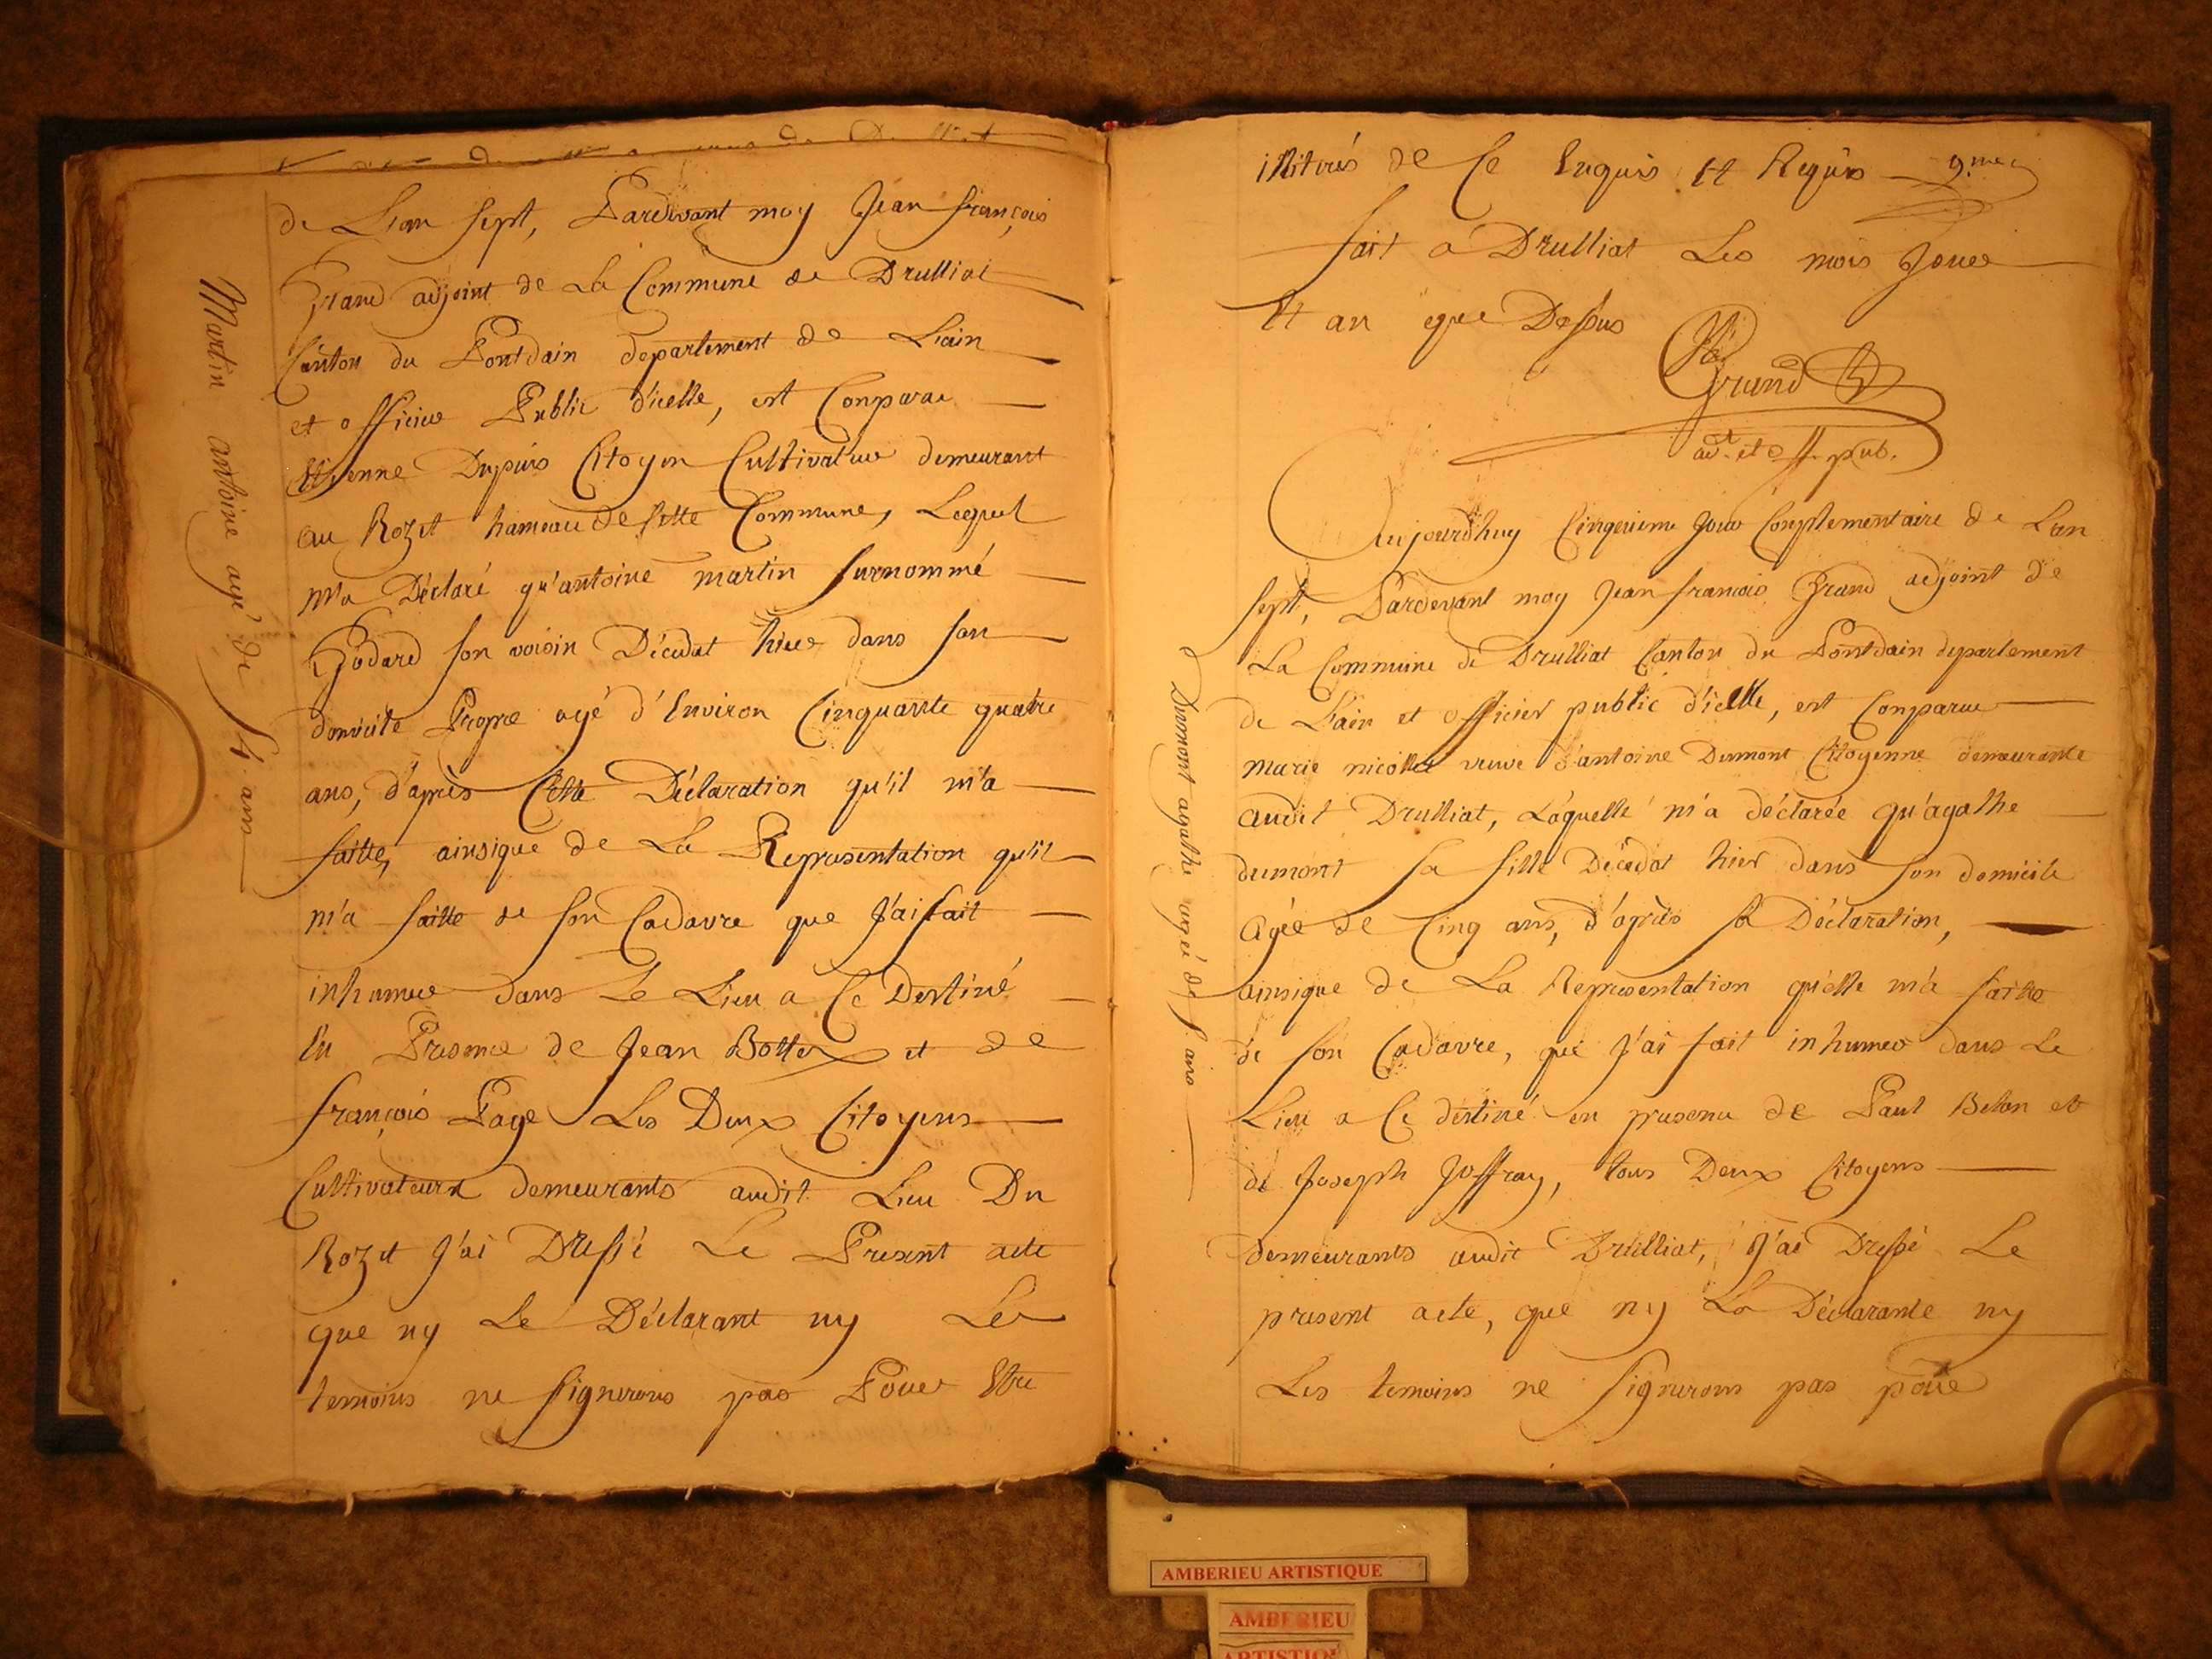 de Lan sept, Pardevant moy Jean françois
Grand adjoint de La Commune de Drulliat
Canton du Pontdain departement de Liain
et officier Public d'icelle, est Comparu
Etienne Dupuis Citoyen Cultivateur demeurant
au Rozet hameau de Cette Commune, Lequel
m'a Déclaré qu'antoine martin surnommé
Godard son voisin Décédat hier dans son
domicile Propre agé d'Environ Cinquante quatre
ans, d'après Cette Déclaration qu'il m'a
faitte, ainsique de La Representation qu'il
m'a faitte de son Cadavre que J'ai fait
inhumer dans Le Lieu a Ce Destiné
En Presence de Jean Bottex et de
françois Page Les Deux Citoyens
Cultivateurs demeurants audit Lieu Du
Rozet J'ai Dressé Le Present acte
que ny Le Déclarant ny Les
temoins ne signerons pas Pour Etre
Martin antoine agé de 54 ans
illitérés de Ce Enquis Et Requis
fait a Drulliat Les mois Jour
Et an que Dessus
Grand
adt. et off. pub.
Aujourdhuy Cinquieme Jour Complementaire de Lan
sept, Pardevant moy Jean francois Grand adjoint de
La Commune de Drulliat Canton du Pontdain departement
de Liain et officier public d'icelle, est Comparue
marie nicollet veuve d'antoine Dumont Citoyenne demeurante
audit Drulliat, Laquelle m'a déclarée qu'agathe
dumont sa fille Décédat hier dans son domicile
agée de Cinq ans, d'après sa Déclaration,
ainsique de La Representation qu'elle m'a faitte
de son Cadavre, que J'ai fait inhumer dans Le
Lieu a Ce destiné en presence de Paul Belon et
de Joseph Joffray, tous Deux Citoyens
demeurants audit Drulliat, J'ai Dressé Le
present acte, que ny La Déclarante ny
Les temoins ne signerons pas pour
Dumont agathe agée de 5 ans
AMBERIEU ARTISTIQUE
AMBERIEU
ARTISTIQUE